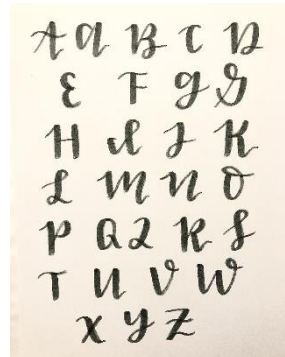 A a B C D
E F g G
H I J K
L M N O
P Q 2 R S
T U V W
X Y Z